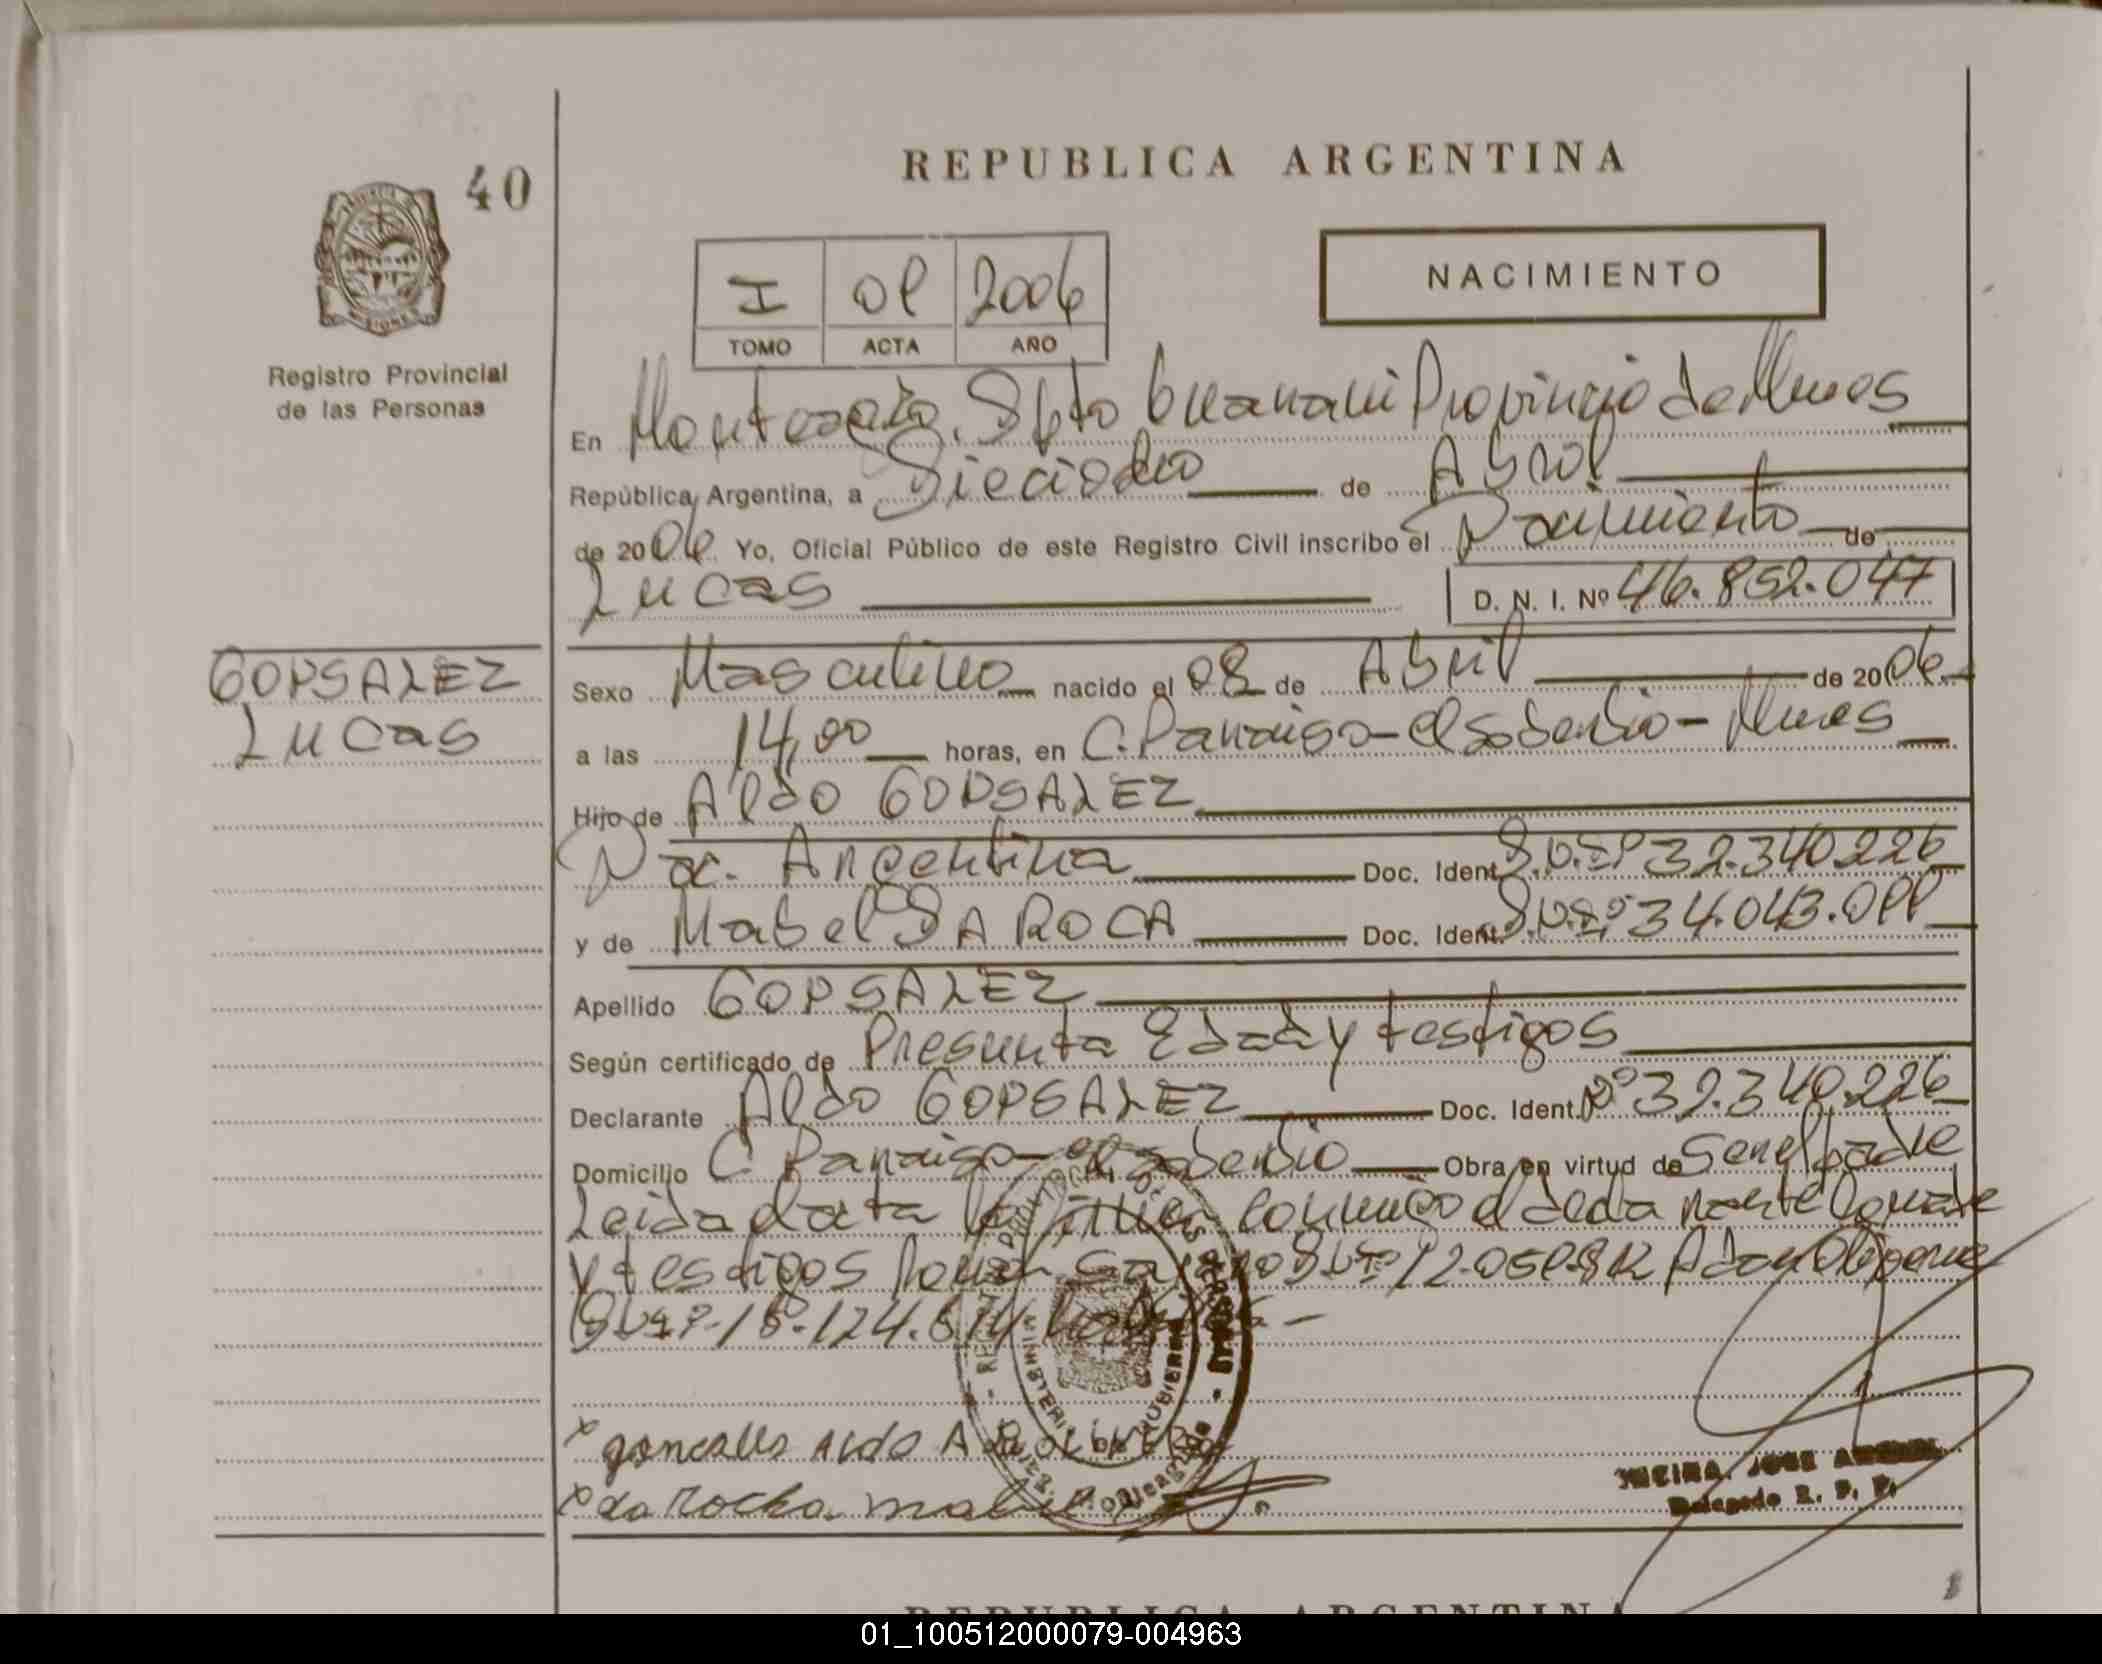 REPUBLICA ARGENTINA
40
NACIMIENTO
I 01 2006
TOMO ACTA AÑO
Registro Provincial
de las Personas
En Dpto Guarani Provincia de Mnes
República Argentina, a Dieciocho de Abril
de 2006 Yo, Oficial Público de este Registro Civil inscribo el Nacimiento de
Lucas D. N. I. Nº 46.852.047
GONSALEZ
Lucas
Sexo Masculino nacido el 08 de Abril de 2006
a las 14,00 horas, en C. Paraiso - el Soberbio - Mnes
Hijo de Aldo GONSALEZ
Nac. Argentina Doc. Ident. D.N.I Nº 32.340.226
y de Mabel DA ROCA Doc. Ident. D.N.I Nº 34.043.011
Apellido GONSALEZ
Según certificado de Presunta Edad y testigos
Declarante Aldo GONSALEZ Doc. Ident. Nº 32.340.226
Domicilio C Paraiso - el Soberbio Obra en virtud de Ser el padre
Leida el acta la firman conmigo el declarante
y testigos
x gonsales Aldo
x da Rocha mabel
JOSE
Delegado R. P. P.
REPUBLICA ARGENTINA
01_100512000079-004963